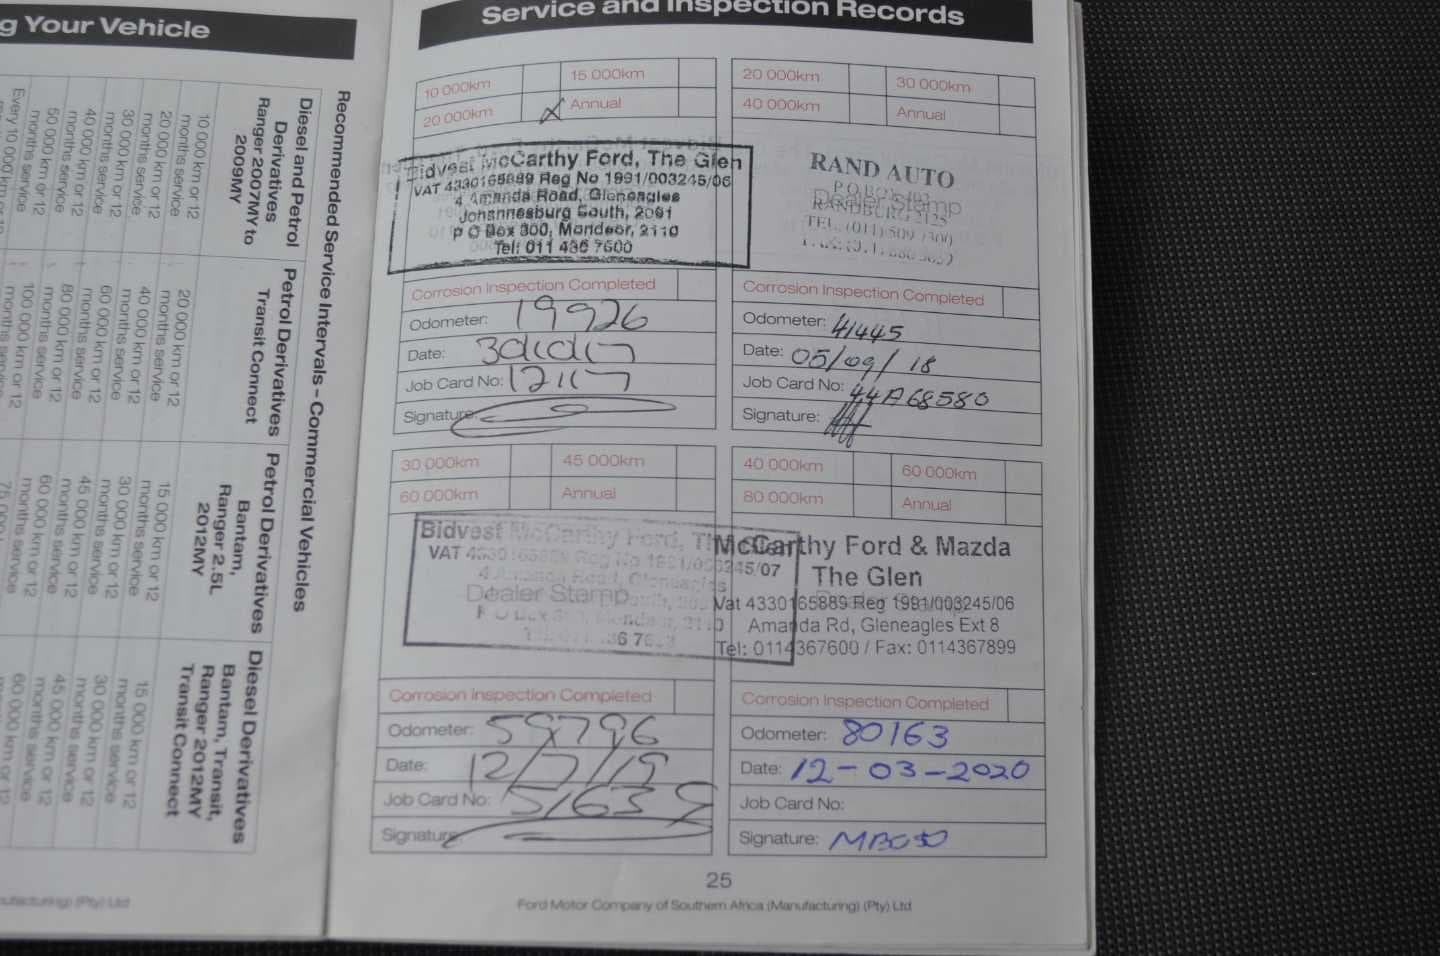 g Your Vehicle
Recommended Service Intervals – Commercial Vehicles
Diesel and Petrol
Derivatives
Ranger 2007MY to
2009MY
10 000 km or 12
months service
20 000 km or 12
months service
30 000 km or 12
months service
40 000 km or 12
months service
50 000 km or 12
months service
Every 10 000 km or
Petrol Derivatives
Transit Connect
20 000 km or 12
months service
40 000 km or 12
months service
60 000 km or 12
months service
80 000 km or 12
months service
100 000 km or 12
months service
Petrol Derivatives
Bantam,
Ranger 2.5L
2012MY
15 000 km or 12
months service
30 000 km or 12
months service
45 000 km or 12
months service
60 000 km or 12
months service
Diesel Derivatives
Bantam, Transit,
Ranger 2012MY
Transit Connect
15 000 km or 12
months service
30 000 km or 12
months service
45 000 km or 12
months service
60 000 km or 12
nufacturing) (Pty) Ltd
Service and Inspection Records
10 000km 15 000km
20 000km X Annual
Bidvest McCarthy Ford, The Glen
VAT 4330165889 Reg No 1991/003245/06
4 Amanda Road, Gleneagles
Johannesburg South, 2091
P O Box 300, Mondeor, 2110
Tel: 011 436 7600
Corrosion Inspection Completed
Odometer: 19926
Date:
Job Card No:
Signature:
20 000km 30 000km
40 000km Annual
RAND AUTO
Dealer Stamp
RANDBURG 2125
TEL: (011)
Corrosion Inspection Completed
Odometer: 41445
Date: 05/09/18
Job Card No: 44A68580
Signature:
30 000km 45 000km
60 000km Annual
Bidvest McCarthy Ford, The Glen
VAT 4330165889 Reg No 1991/003245/07
4 Amanda Road, Gleneagles
Dealer Stamp
Corrosion Inspection Completed
Odometer: 59796
Date: 12/7/19
Job Card No: 51639
Signature:
40 000km 60 000km
80 000km Annual
McCarthy Ford & Mazda
The Glen
Vat 4330165889 Reg 1991/003245/06
Dealer Stamp
Amanda Rd, Gleneagles Ext 8
Tel: 0114367600 / Fax: 0114367899
Corrosion Inspection Completed
Odometer: 80163
Date: 12-03-2020
Job Card No:
Signature:
25
Ford Motor Company of Southern Africa (Manufacturing) (Pty) Ltd